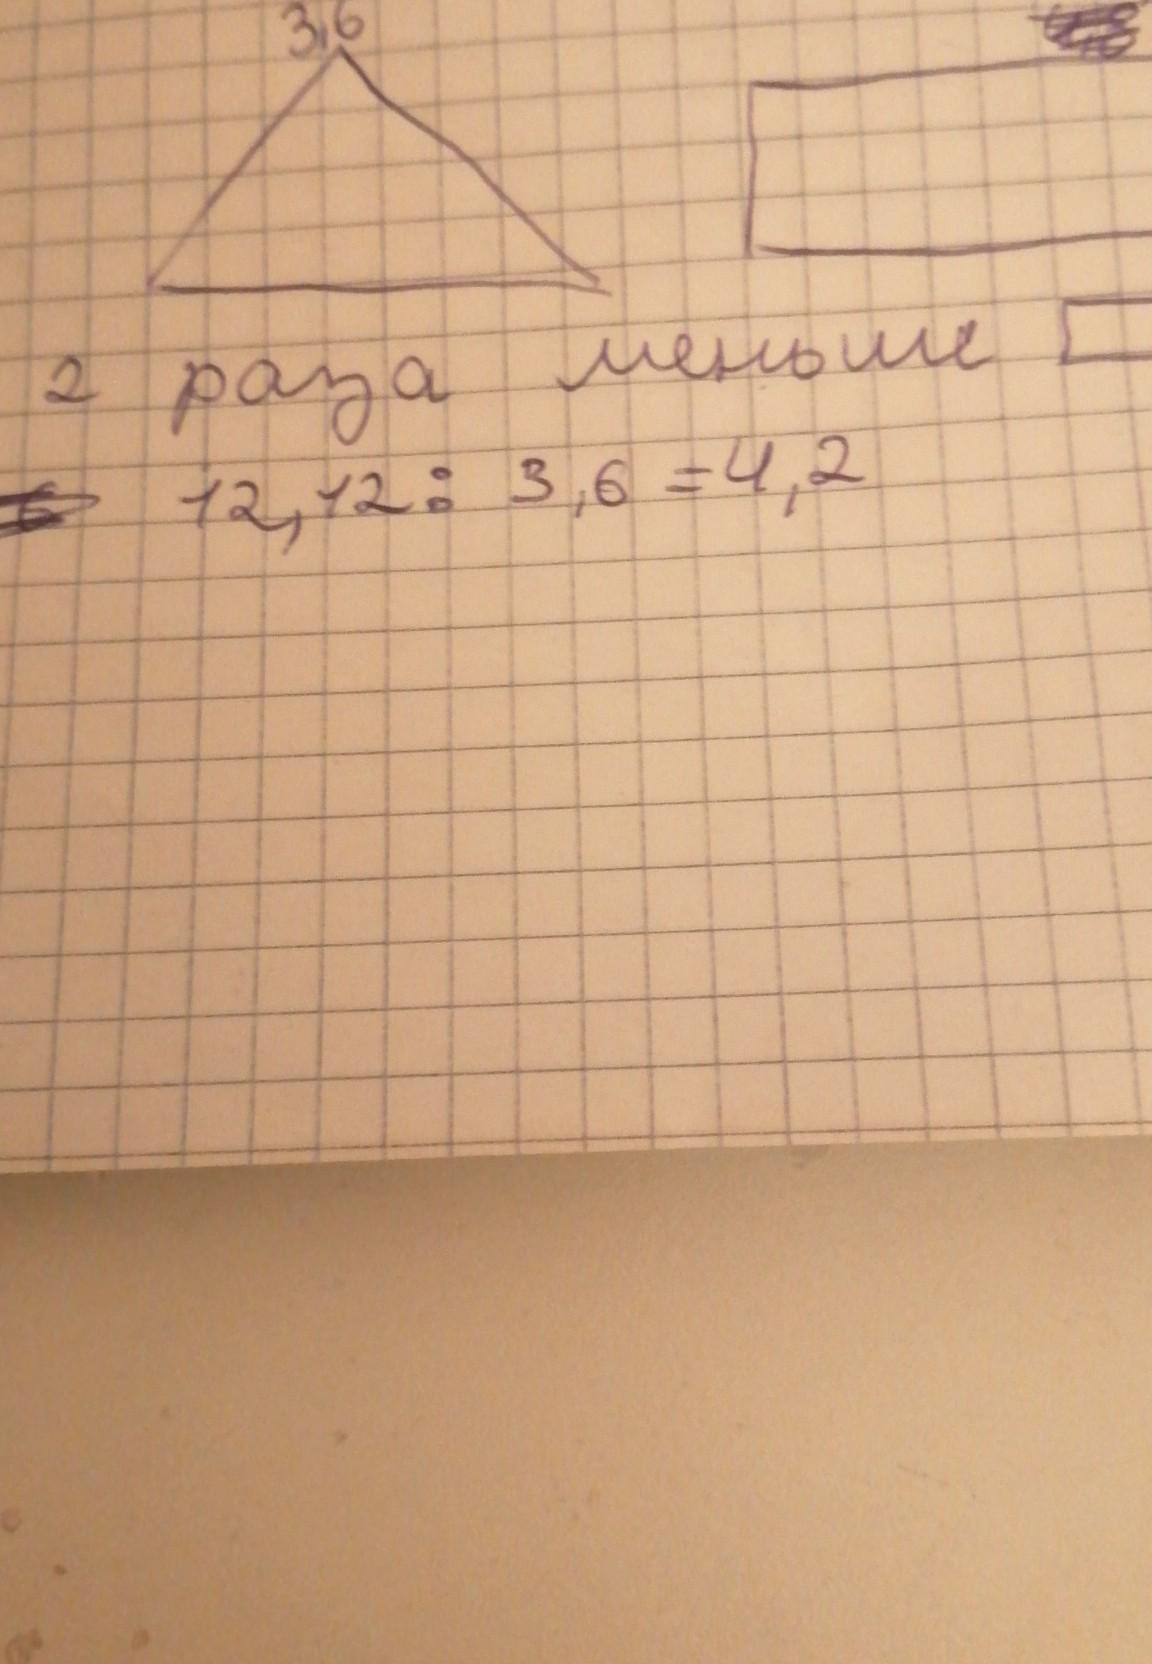 3,6
2 раза меньше
12,12 : 3,6 = 4,2